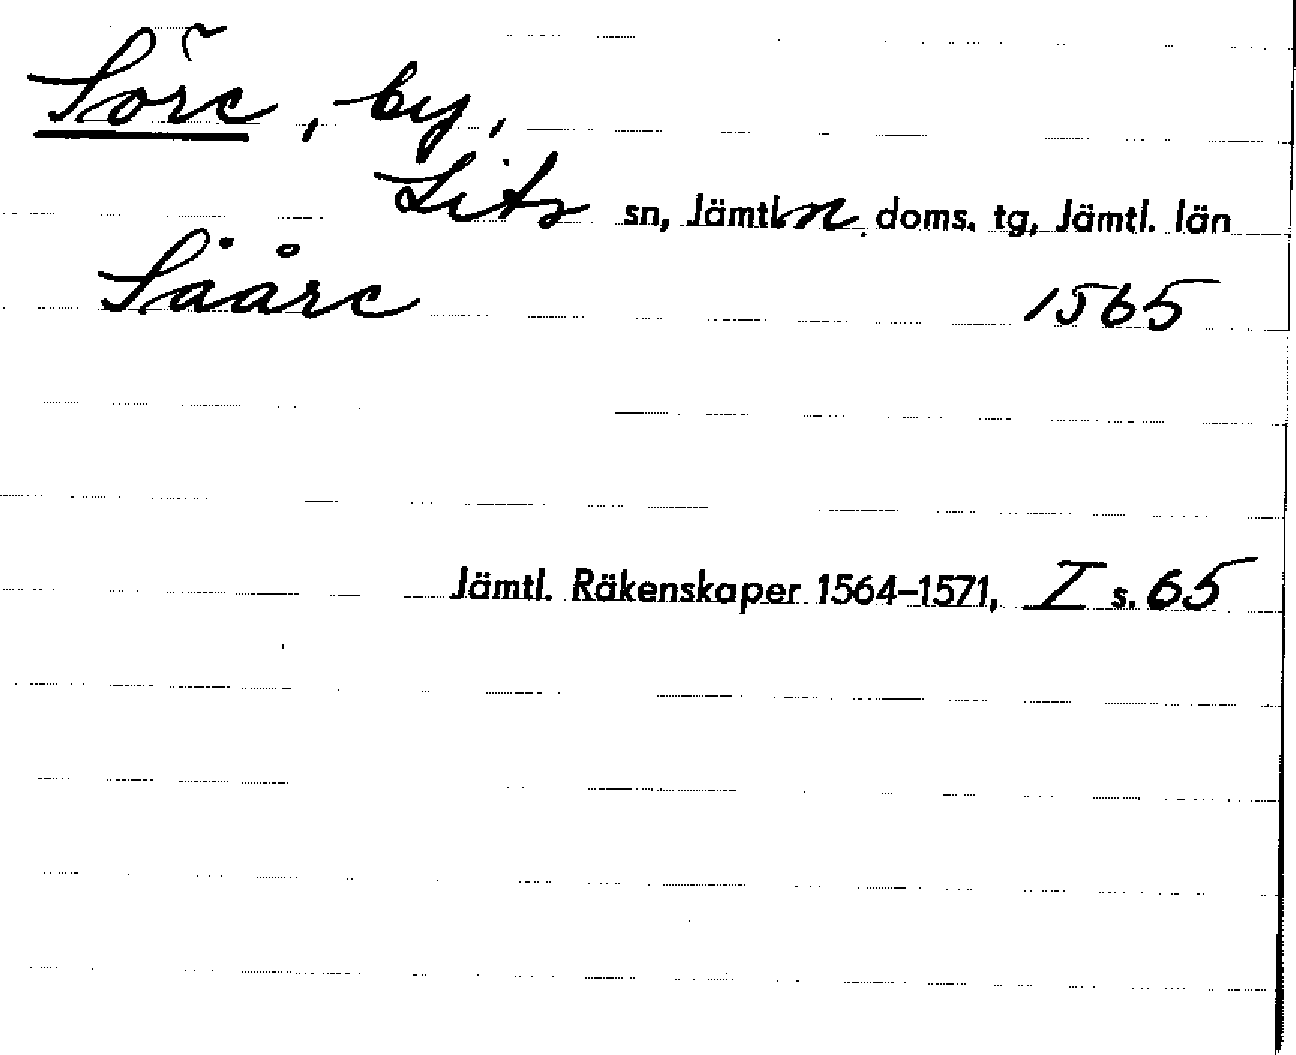 Söre, by,
Lits sn, Jämtl. n. doms. tg, Jämtl. län
Sååre 1565
Jämtl. Räkenskaper 1564–1571, I s. 65